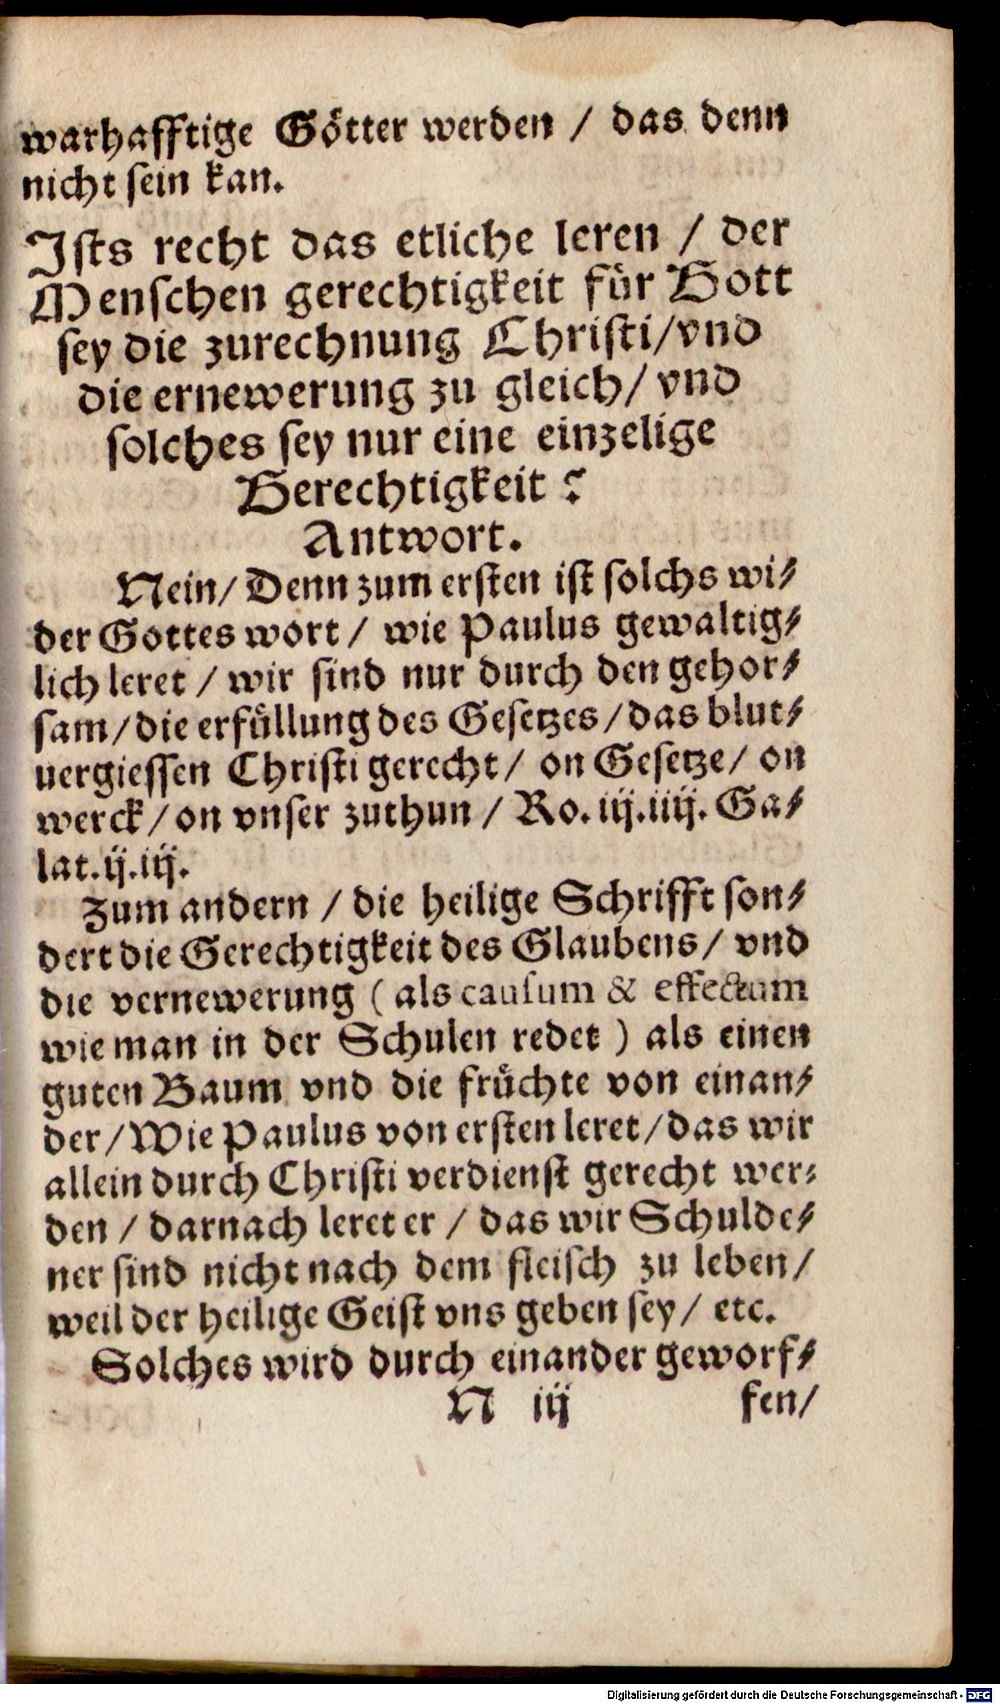 warhafftige Götter werden / das denn
nicht sein kan.
Ists recht das etliche leren / der
Menschen gerechtigkeit für Gott
sey die zurechnung Christi/vnd
die ernewerung zu gleich/ vnd
solches sey nur eine einzelige
Gerechtigkeit?
Antwort.
Nein/ Denn zum ersten ist solchs wi-
der Gottes wort / wie Paulus gewaltig-
lich leret / wir sind nur durch den gehor-
sam/die erfüllung des Gesetzes/das blut-
uergiessen Christi gerecht/ on Gesetze/ on
werck/on vnser zuthun / Ro. iij.iiij. Ga-
lat.ij.iij.
Zum andern / die heilige Schrifft son-
dert die Gerechtigkeit des Glaubens/ vnd
die vernewerung ( als causum & effectum
wie man in der Schulen redet ) als einen
guten Baum vnd die früchte von einan-
der/Wie Paulus von ersten leret/das wir
allein durch Christi verdienst gerecht wer-
den / darnach leret er / das wir Schulde-
ner sind nicht nach dem fleisch zu leben/
weil der heilige Geist vns geben sey/ etc.
Solches wird durch einander geworf-
N iij fen/
Digitalisierung gefördert durch die Deutsche Forschungsgemeinschaft - DFG